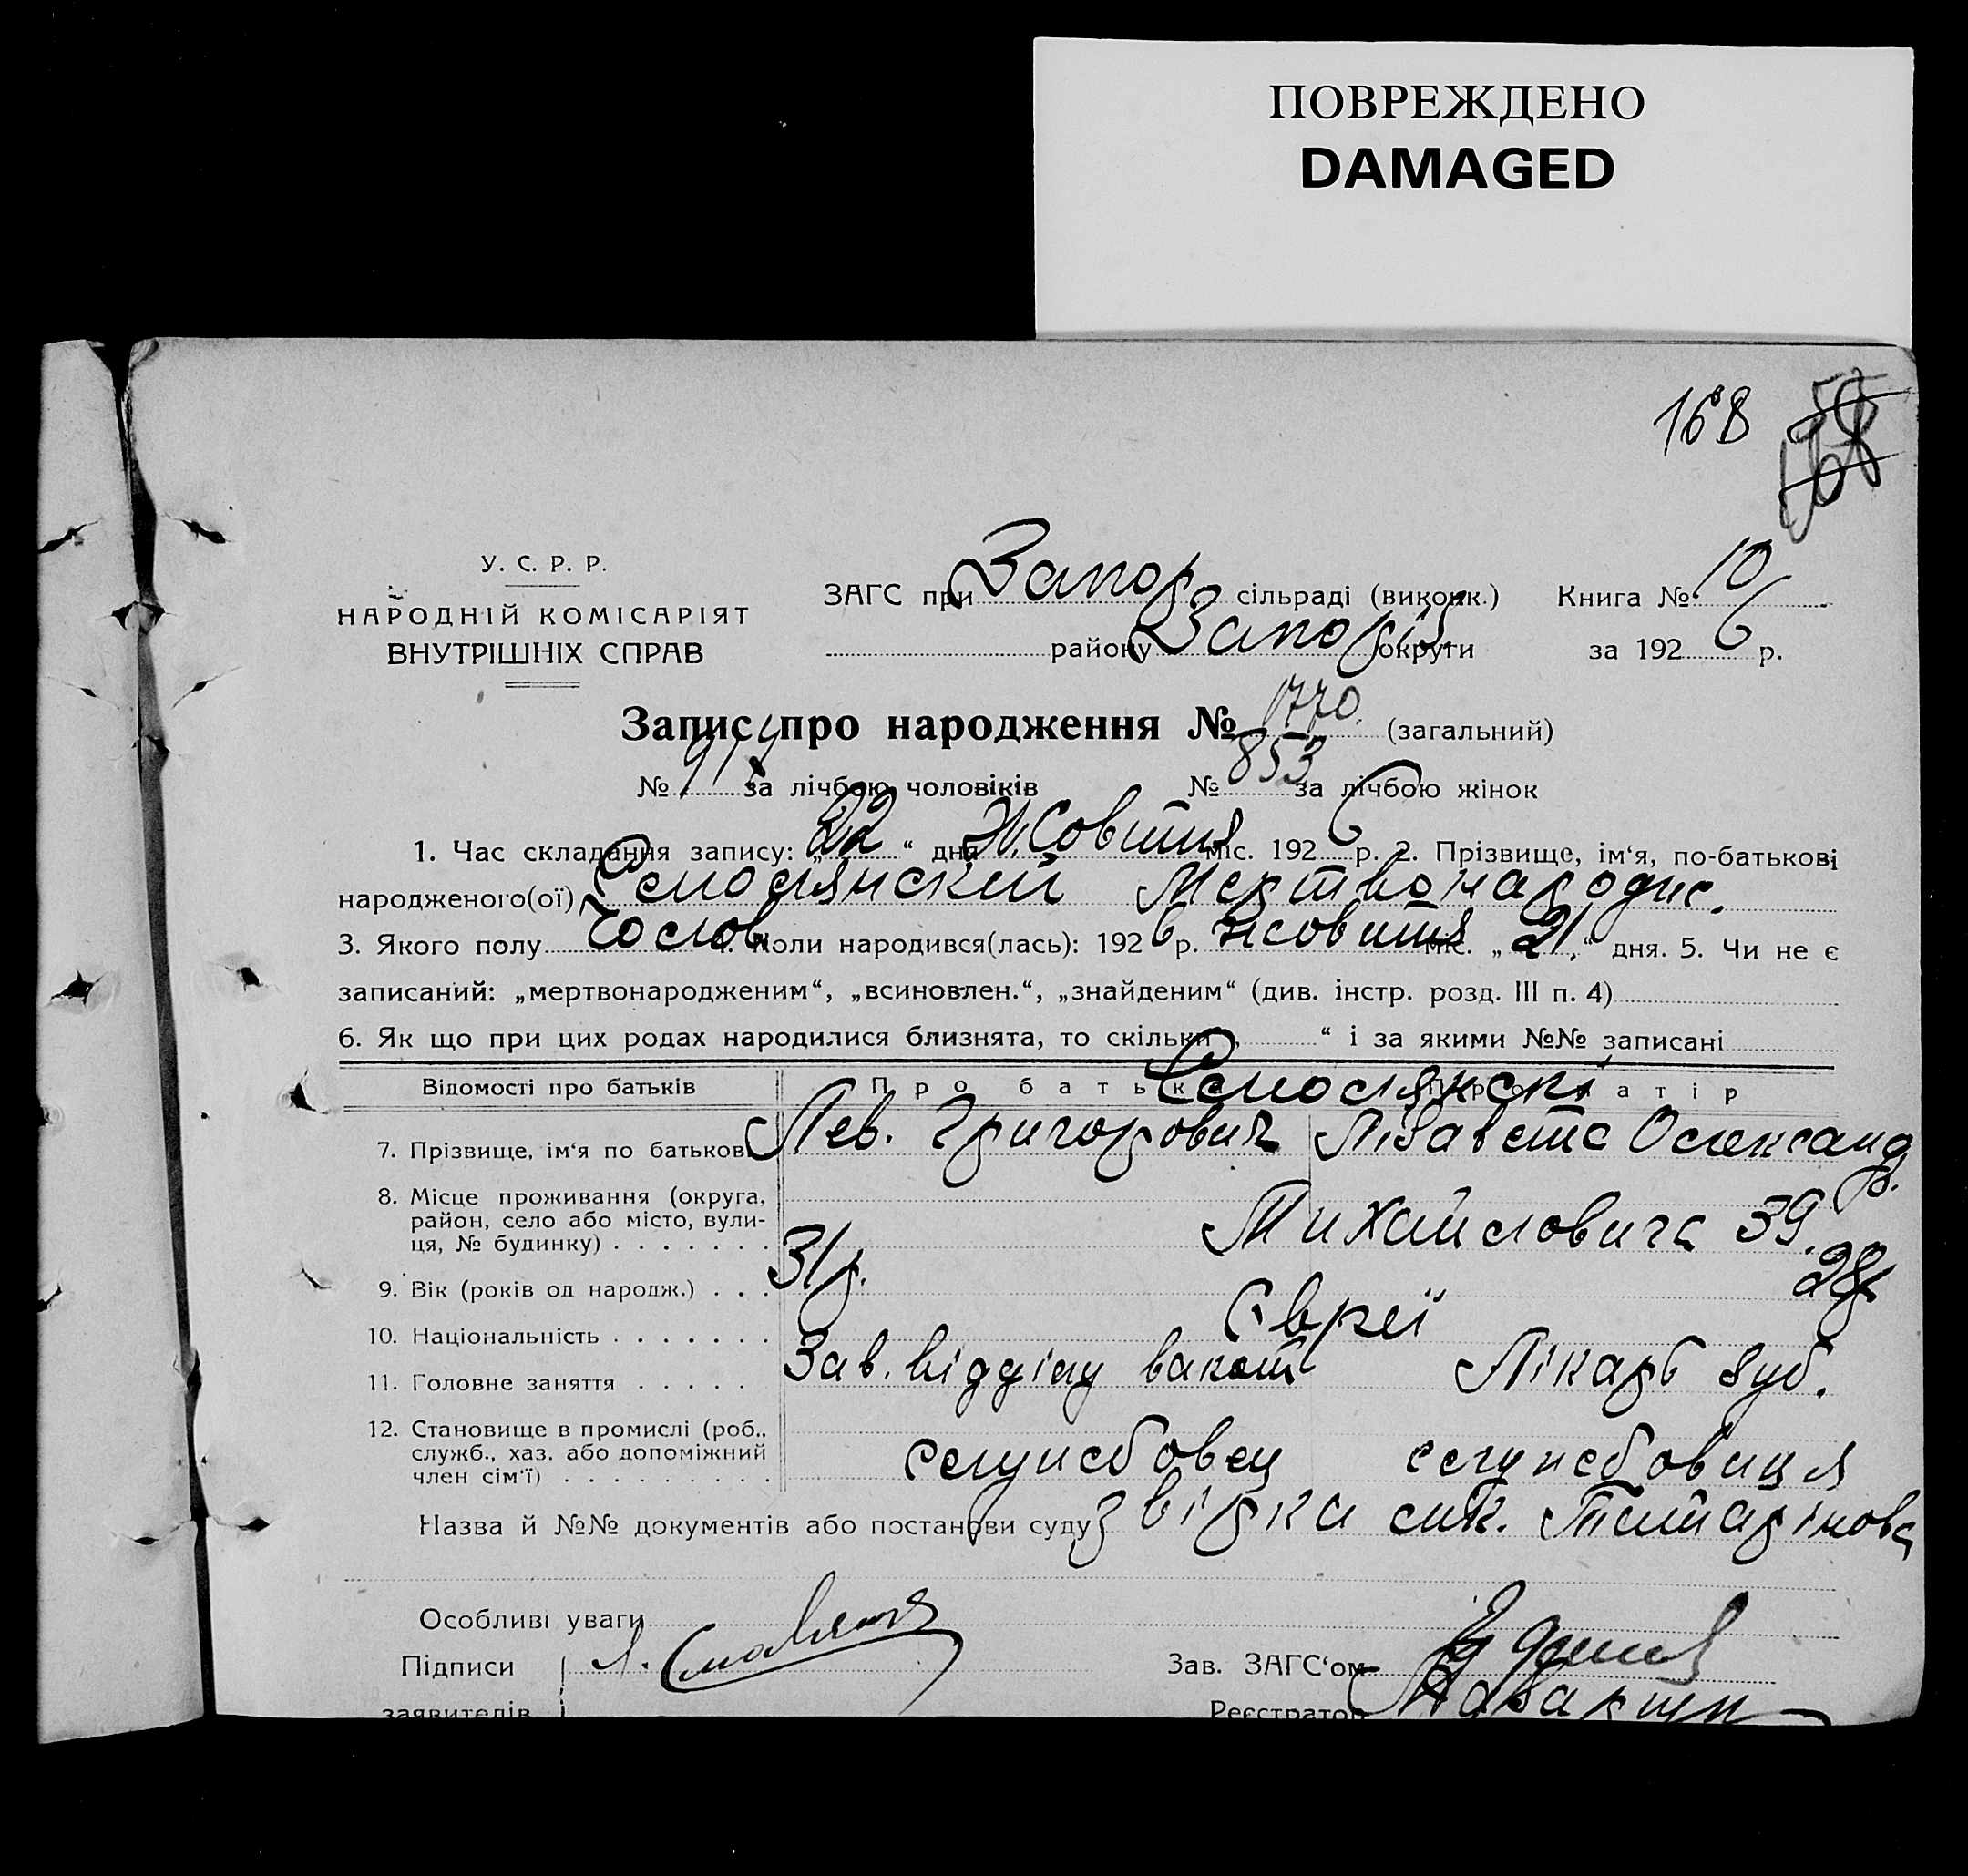 ПОВРЕЖДЕНО
DAMAGED
168
У. С. Р. Р.
НАРОДНІЙ КОМІСАРІЯТ
ВНУТРІШНІХ СПРАВ
ЗАГС при Запор сільраді (виконк.) Книга № 10
району Запоріз округи за 192 6 р.
Запис про народження № 1770 (загальний)
№ 917 за лічбою чоловіків № 853 за лічбою жінок
1. Час складання запису: „22“ дня Жовтня міс. 192 6 р. 2. Прізвище, ім‘я, по-батькові
народженого(ої) Смолянский Мертвонародж.
3. Якого полу Чолов 4. Коли народився(лась): 192 6 р. жовтня міс. „21“ дня. 5. Чи не є
записаний: „мертвонародженим“, „всиновлен.“, „знайденим“ (див. інстр. розд. III п. 4)
6. Як що при цих родах народилися близнята, то скільки „ “ і за якими №№ записані
Відомості про батьків Про батька Про матір
Смолянскі
7. Прізвище, ім‘я по батькові Лев. Григорович Лізавета Олександр.
8. Місце проживання (округа,
район, село або місто, вули-
ця, № будинку) . . . . . . . Михайловича 39.
9. Вік (років од народж.) . . . 31 р. 28 р
10. Національність . . . . . . . Євреї
11. Головне заняття . . . . . Зав. відділу Лікарь зуб.
12. Становище в промислі (роб.,
служб., хаз. або допоміжний
член сім‘ї) . . . . . . . . . службовец службовиця
Назва й №№ документів або постанови суду
Особливі уваги
Підписи Зав. ЗАГС‘ом
заявителів Реєстратор